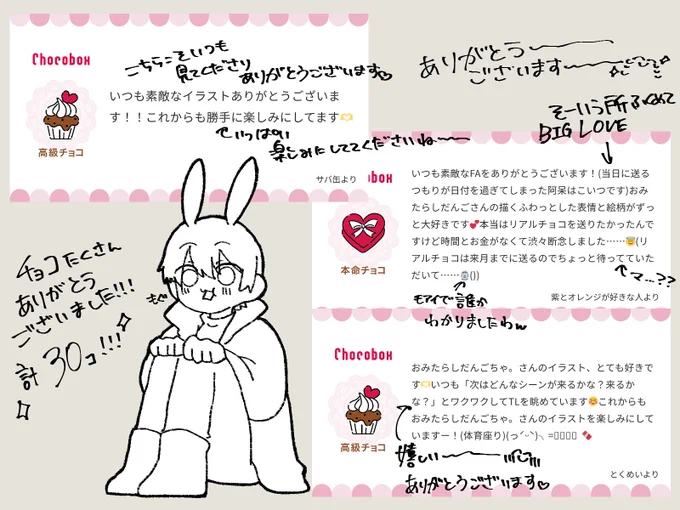 こちらこそいつも
見てくださり
ありがとうございます♡
Chocobox
いつも素敵なイラストありがとうございま
す！！これからも勝手に楽しみにしてます🫶
高級チョコ
いっぱい
楽しみにしててくださいねーー
サバ缶より
ありがとうーー
ございますーー
どこまで
そーいう所ふくめて
BIG LOVE
box
いつも素敵なFAをありがとうございます！(当日に送る
つもりが日付を過ぎてしまった阿呆はこいつです)おみ
たらしだんごさんの描くふわっとした表情と絵柄がずっ
と大好きです💕本当はリアルチョコを送りたかったんで
すけど時間とお金がなくて渋々断念しました……😇(リ
アルチョコは来月までに送るのでちょっと待ってていた
だいて……🗿())
本命チョコ
マ…??
紫とオレンジが好きな人より
モアイで誰か
わかりましたわん
チョコたくさん
ありがとう
ございました!!!
計30コ!!!
もぐ
Chocobox
おみたらしだんごちゃ。さんのイラスト、とても好きで
す🫶いつも「次はどんなシーンが来るかな？来るか
な？」とワクワクしてTLを眺めています☺️これからも
おみたらしだんごちゃ。さんのイラストを楽しみにして
いますー！(体育座り)(っ´ᵕ`)╮=͟͟͞͞ 🍫
高級チョコ
嬉しいーー
ありがとうございます♡
とくめいより